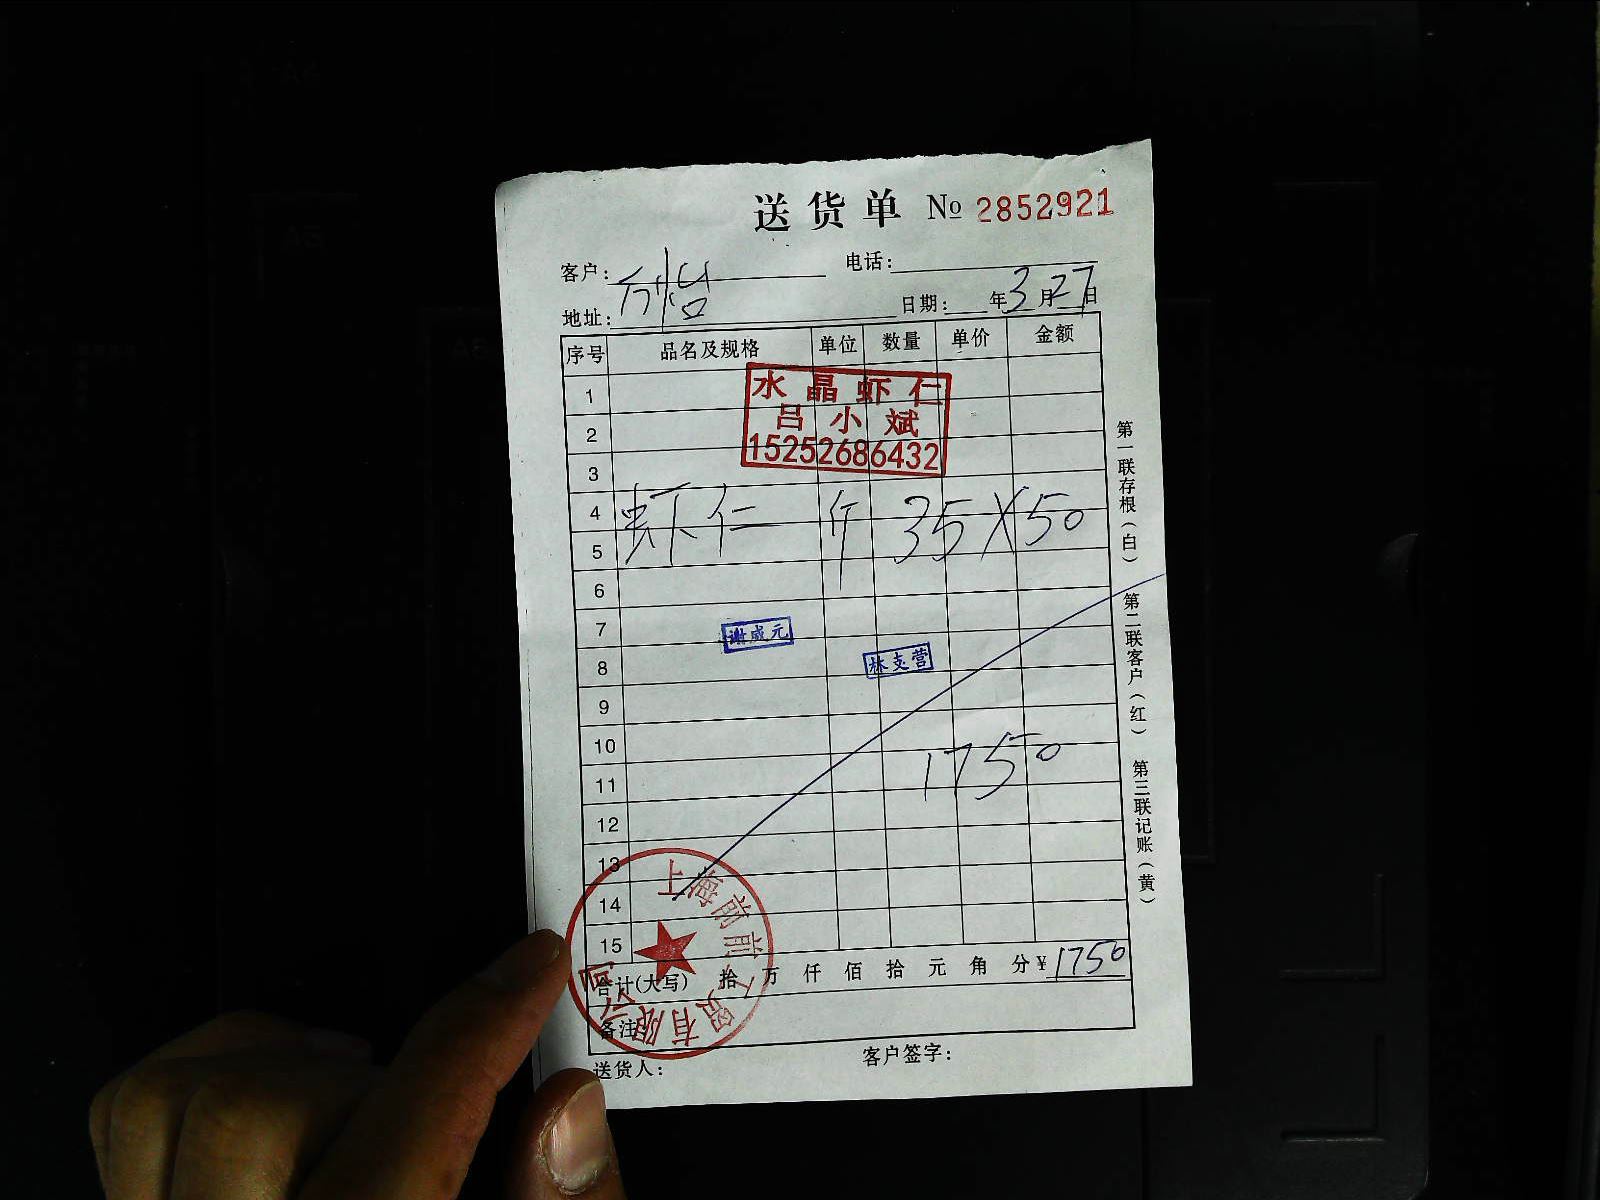 送货单 № 2852921
客户: 万怡 电话:
地址: 日期: 年3月27日
序号 品名及规格 单位 数量 单价 金额
水晶虾仁
吕小斌
15252686432
1
2
3
4
5
虾仁 斤 35×50
6
7
谢威元
8
林支营
9
10
11
1750
12
13
14
15
合计(大写) 拾 万 仟 佰 拾 元 角 分¥ 1750
备注
送货人: 客户签字:
第一联存根(白) 第二联客户(红) 第三联记账(黄)